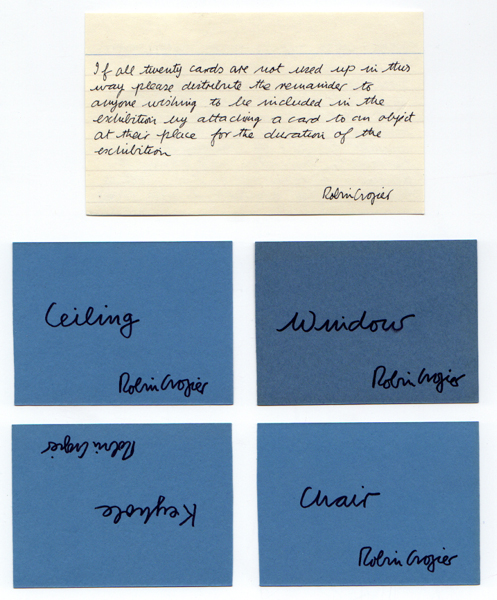 If all twenty cards are not used up in this
way please distribute the remainder to
anyone wishing to be included in the
exhibition by attaching a card to an object
at their place for the duration of the
exhibition
Robin Crozier
Ceiling
Robin Crozier
Window
Robin Crozier
Keyhole
Robin Crozier
Chair
Robin Crozier